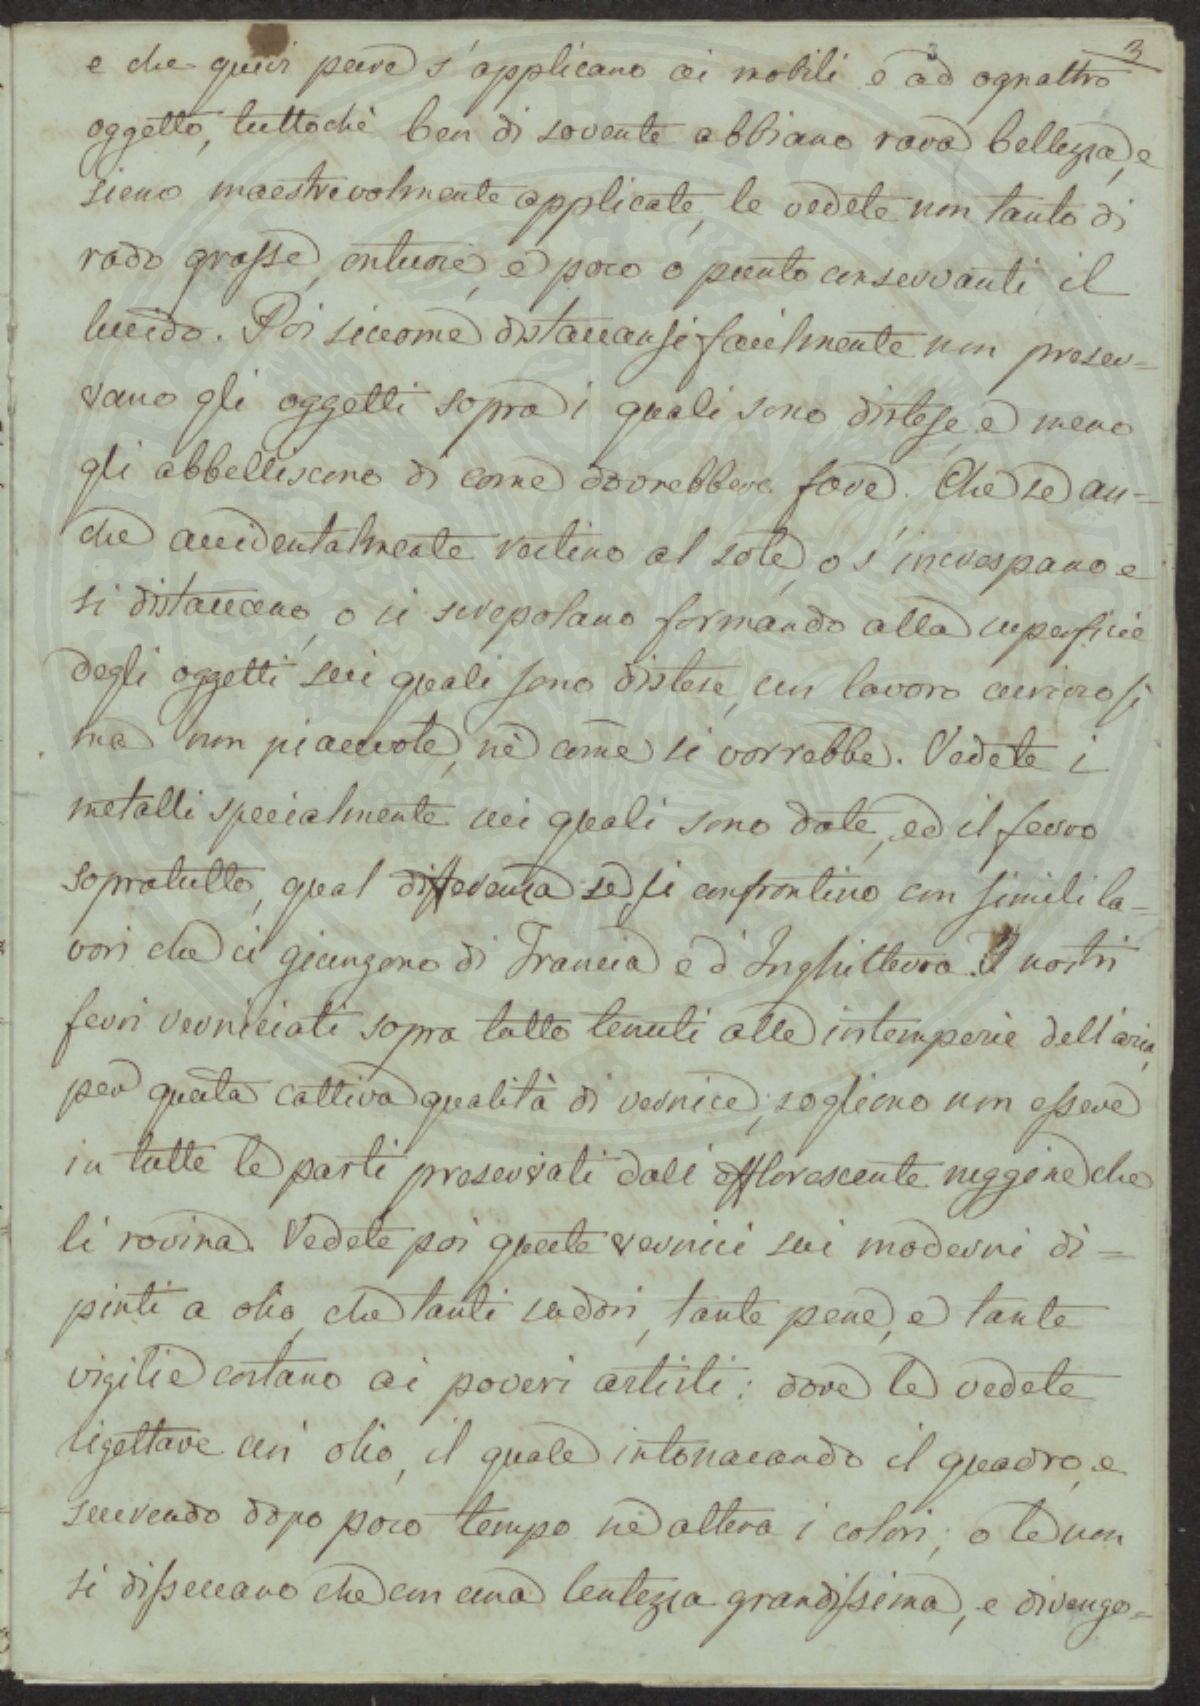 3
e che quivi pure s'applicano ai mobili e ad ognaltro
oggetto, tuttochè ben di sovente abbiano rara bellezza, e
sieno maestrevolmente applicate, le vedete non tanto di
rado grasse, ontuose, e poco o punto conservanti il
lucido. Poi siccome distaccansi facilmente non preser=
vano gli oggetti sopra i quali sono distese e meno
gli abbelliscono di come dovrebbero fare. Che se an=
che accidentalmente restino al sole, o s'increspano e
si distaccano, o si screpolano formando alla superficie
degli oggetti sui quali sono distese, un lavoro curioso sì
ma non piacevole, nè come si vorrebbe. Vedete i
metalli specialmente sui quali sono date, ed il ferro
sopratutto, qual differenza se si confrontino con simili la=
vori che ci giungono di Francia e d'Inghilterra. I nostri
ferri verniciati sopra tutto tenuti alle intemperie dell'aria,
per questa cattiva qualità di vernice, sogliono non essere
in tutte le parti preservati dall' efflorescente ruggine che
li rovina. Vedete poi queste vernici sui moderni di=
pinti a olio, che tanti sudori, tante pene, e tante
vigilie costano ai poveri artisti: dove le vedete
rigettare un' olio, il quale intonacando il quadro, e
scurendo dopo poco tempo ne altera i colori; o le non
si disseccano che con una lentezza grandissima, e divengo=